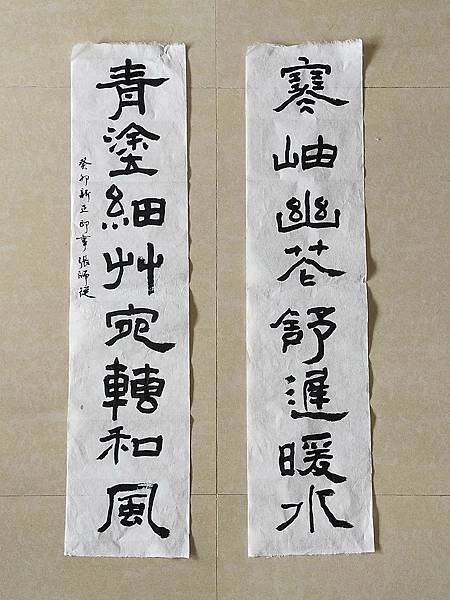 寒岫幽花舒進暖水
青塗細艸宛轉和風
癸卯新正即事張師從